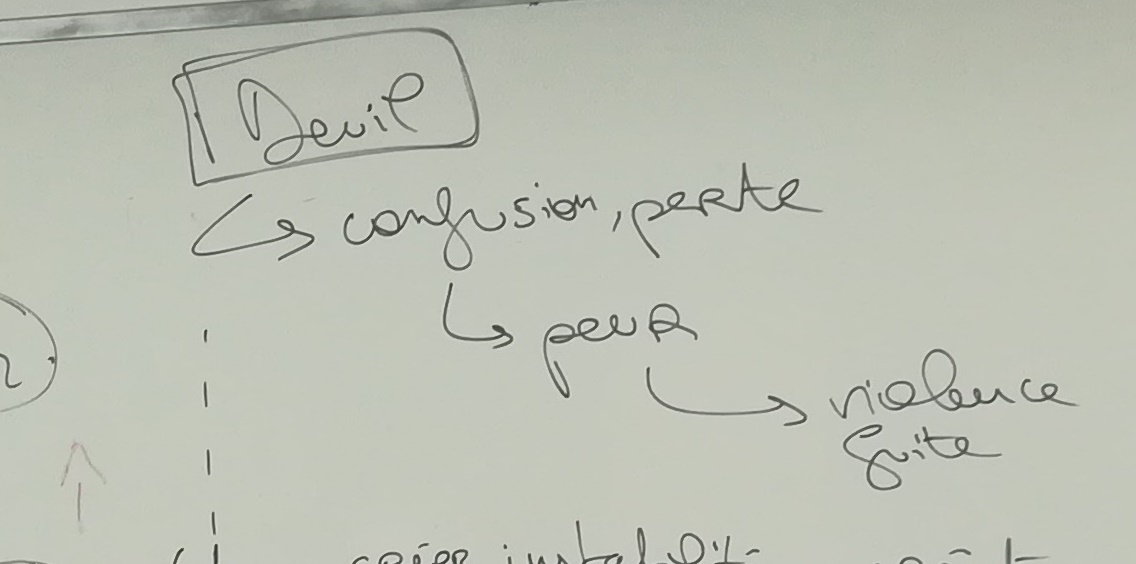 Devil
confusion, perte
peur
violence
fuite